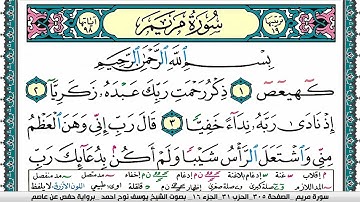 سُورَةُ مَرْيَمَ
بِسْمِ اللَّهِ الرَّحْمَٰنِ الرَّحِيمِ
كٓهيعٓصٓ ١ ذِكْرُ رَحْمَتِ رَبِّكَ عَبْدَهُۥ زَكَرِيَّآ ٢
إِذْ نَادَىٰ رَبَّهُۥ نِدَآءً خَفِيًّا ٣ قَالَ رَبِّ إِنِّى وَهَنَ ٱلْعَظْمُ
مِنِّى وَٱشْتَعَلَ ٱلرَّأْسُ شَيْبًا وَلَمْ أَكُنۢ بِدُعَآئِكَ رَبِّ
سورة مريم الصفحة ٣٠٥ الحزب ٣١ الجزء ١٦ بصوت الشيخ يوسف نوح احمد برواية حفص عن عاصم